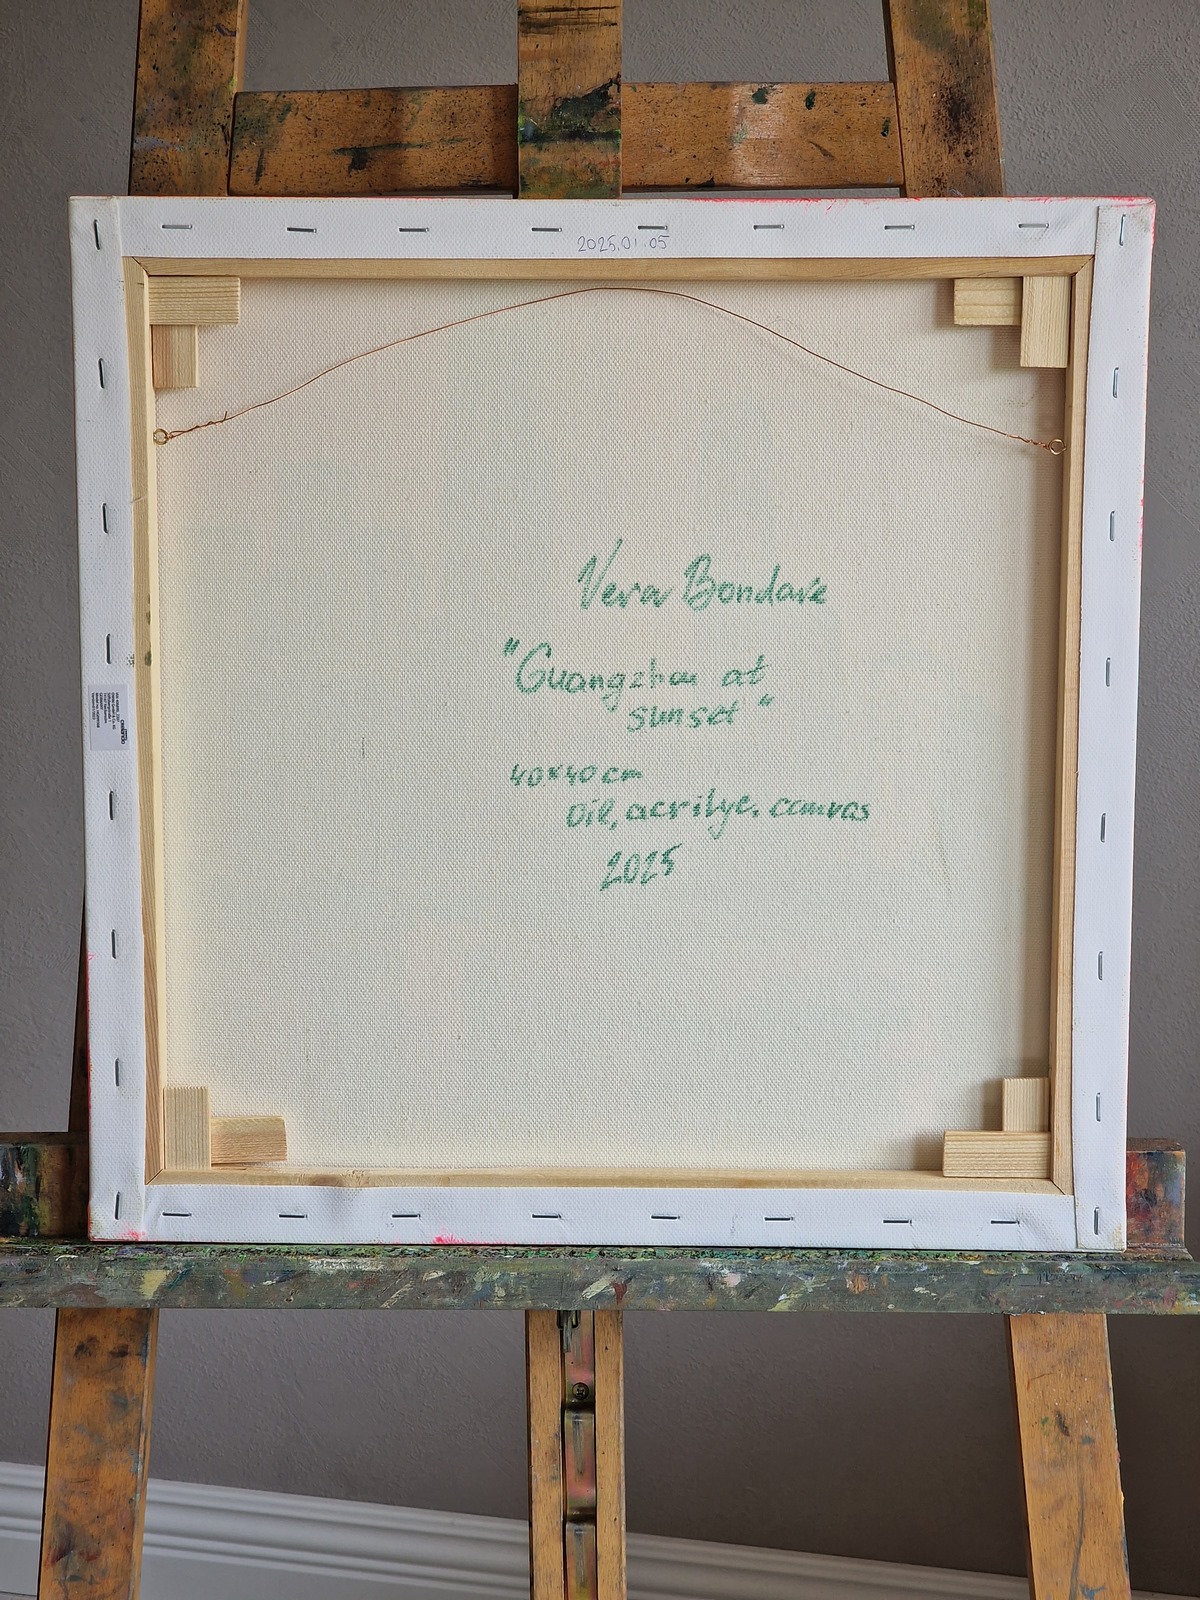 2025.01.05
Vera Bondare
"Guangzhou at
sunset"
40x40 cm
oil, acrilyc. canvas
2025